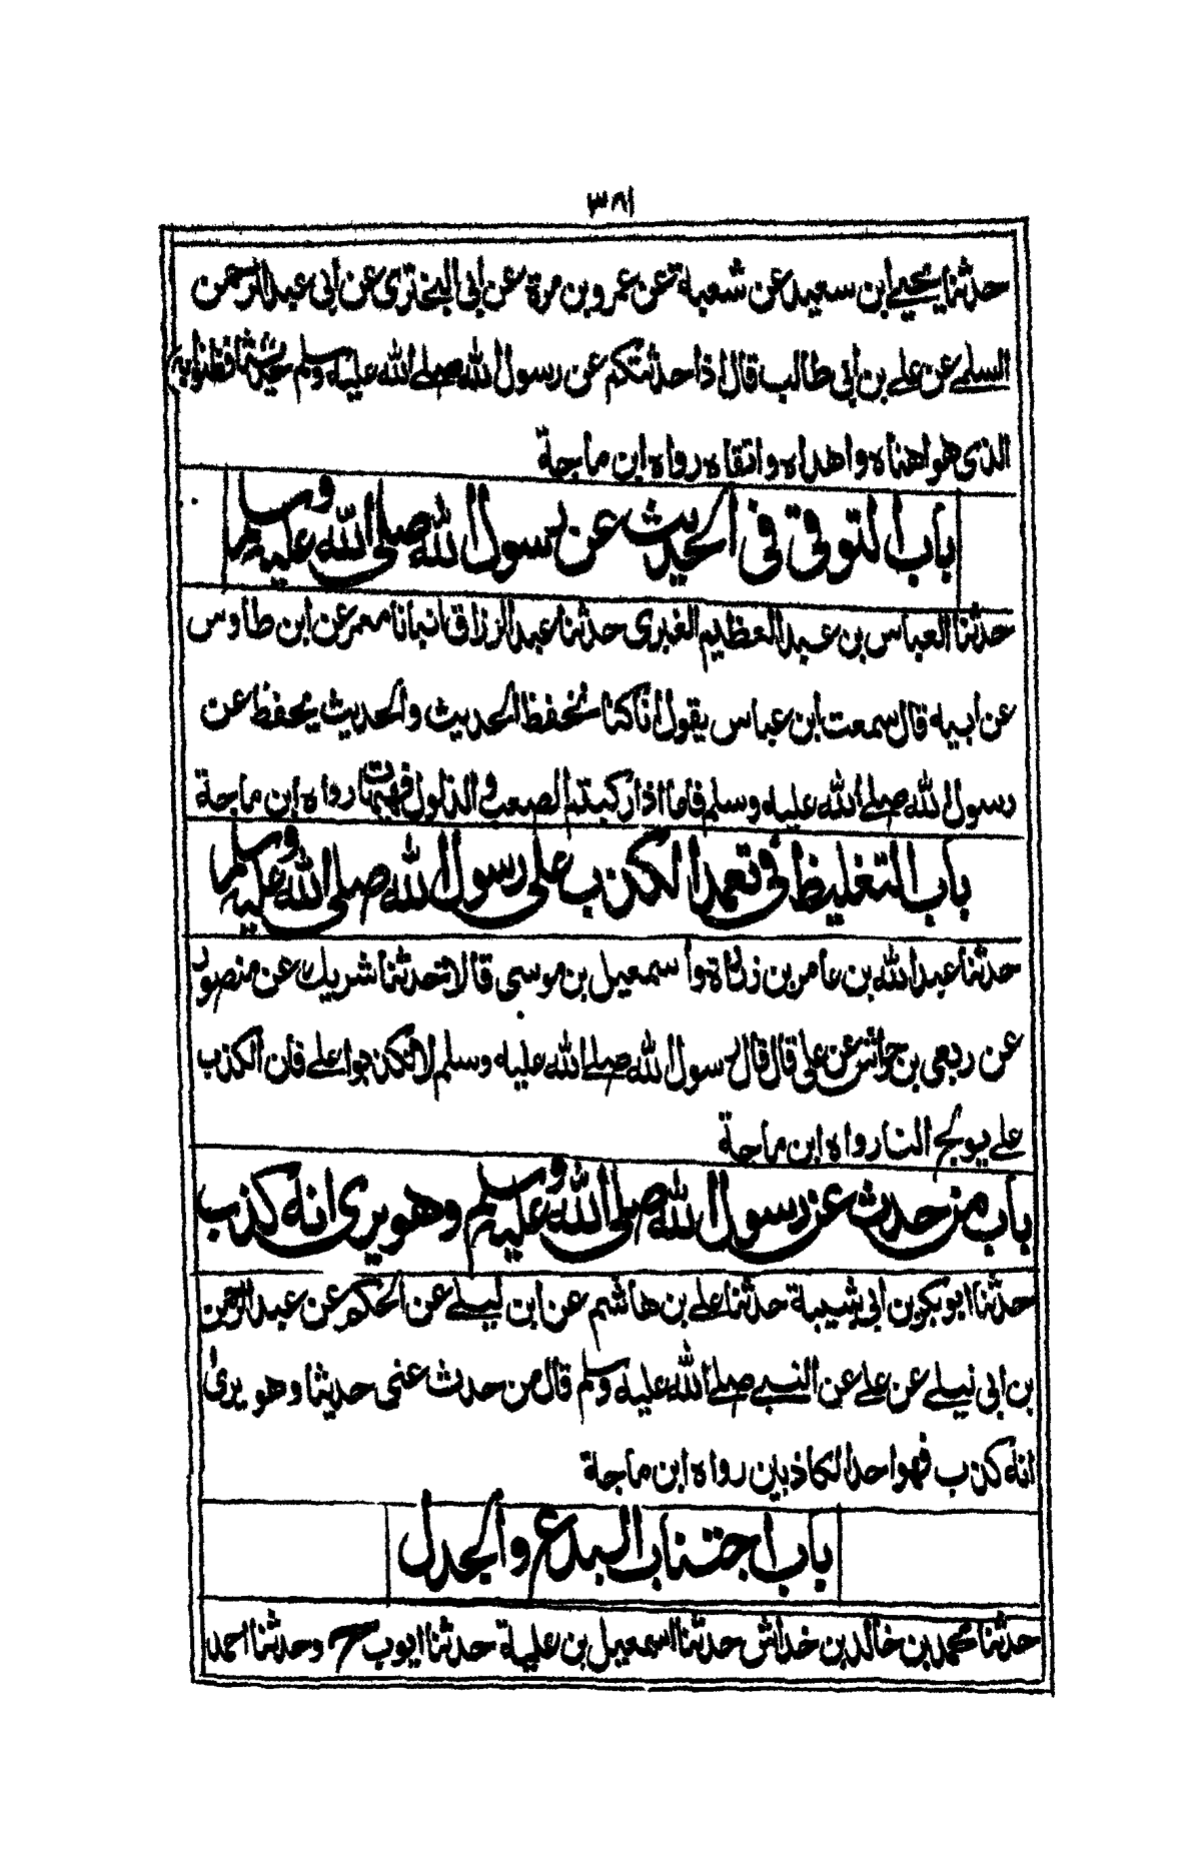 ٣٨١
حدثنا يحيى ابن سعيد عن شعبة عن عمرو بن مرة عن ابى البخترى عن ابى عبد الرحمن
السلمى عن على بن ابى طالب قال اذا حدثتكم عن رسول الله صلى الله عليه وسلم حديثا فظنوا به
الذى هو اهناه واهداه واتقاه رواه ابن ماجة
باب التوقى فى الحديث عن رسول الله صلى الله عليه وسلم
حدثنا العباس بن عبد العظيم العنبرى حدثنا عبد الرزاق انبانا معمر عن ابن طاوس
عن ابيه قال سمعت ابن عباس يقول انا كنا نحفظ الحديث والحديث يحفظ عن
رسول الله صلى الله عليه وسلم فاما اذا ركبتم الصعب والذلول فهيهات رواه ابن ماجة
باب التغليظ فى تعمد الكذب على رسول الله صلى الله عليه وسلم
حدثنا عبد الله بن عامر بن زرارة واسمعيل بن موسى قالا حدثنا شريك عن منصور
عن ربعى بن حراش عن على قال قال رسول الله صلى الله عليه وسلم لا تكذبوا على فان الكذب
على يولج النار رواه ابن ماجة
باب من حدث عن رسول الله صلى الله عليه وسلم وهو يرى انه كذب
حدثنا ابو بكر بن ابى شيبة حدثنا على بن هاشم عن ابن ليلى عن الحكم عن عبد الرحمن
بن ابى ليلى عن على عن النبى صلى الله عليه وسلم قال من حدث عنى حديثا وهو يرى
انه كذب فهو احد الكاذبين رواه ابن ماجة
باب اجتناب البدع والجدل
حدثنا محمد بن خالد بن خداش حدثنا اسمعيل بن علية حدثنا ايوب ح وحدثنا احمد